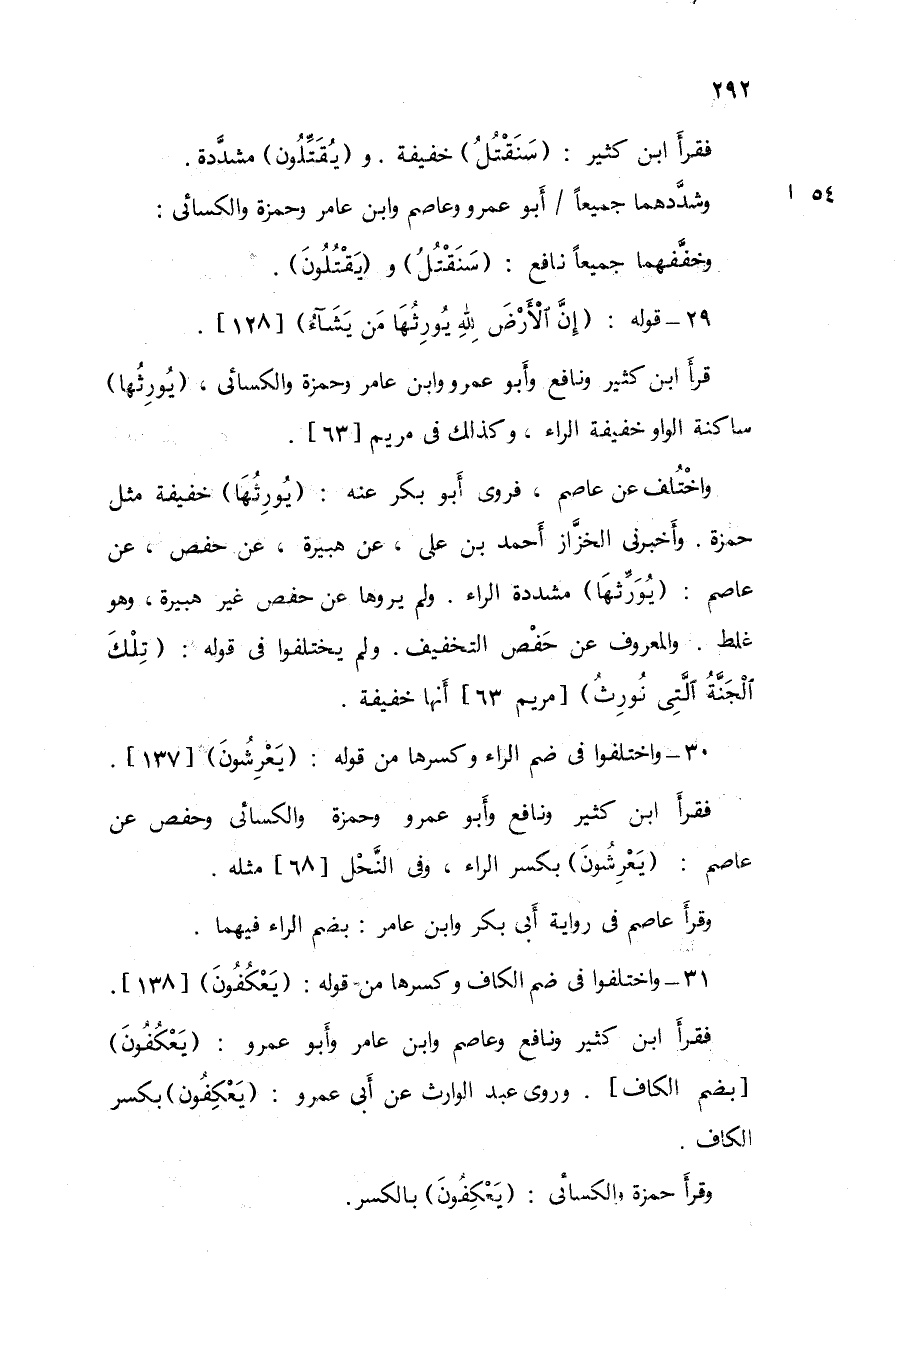 ٢٩٢
فقرأ ابن كثير : (سَنَقْتُلُ) خفيفة . و (يُقَتِّلُون) مشدَّدة .
وشدَّدهما جميعاً / أبو عمرو وعاصم وابن عامر وحمزة والكسائى :
٥٤ ا
وخفَّفهما جميعاً نافع : (سَنَقْتُلُ) و (يَقْتُلُونَ) .
٢٩ – قوله : (إِنَّ ٱلْأَرْضَ لِلّٰهِ يُورِثُهَا مَن يَشَآءُ) [١٢٨] .
قرأ ابن كثير ونافع وأبو عمرو وابن عامر وحمزة والكسائى ، (يُورِثُها)
ساكنة الواو خفيفة الراء ، وكذلك فى مريم [٦٣] .
واخْتُلف عن عاصم ، فروى أبو بكر عنه : (يُورِثُهَا) خفيفة مثل
حمزة . وأخبرنى الخزَّاز أحمد بن على ، عن هبيرة ، عن حفص ، عن
عاصم : (يُوَرِّثُهَا) مشددة الراء . ولم يروها عن حفص غير هبيرة ، وهو
غلط . والمعروف عن حَفْص التخفيف . ولم يختلفوا فى قوله : (تِلْكَ
ٱلْجَنَّةُ ٱلَّتِى نُورِثُ) [مريم ٦٣] أنها خفيفة .
٣٠ – واختلفوا فى ضم الراء وكسرها من قوله : (يَعْرِشُونَ) [١٣٧] .
فقرأ ابن كثير ونافع وأبو عمرو وحمزة والكسائى وحفص عن
عاصم : (يَعْرِشُونَ) بكسر الراء ، وفى النَّحْل [٦٨] مثله .
وقرأ عاصم فى رواية أبى بكر وابن عامر : بضم الراء فيهما .
٣١ – واختلفوا فى ضم الكاف وكسرها من قوله : (يَعْكُفُونَ) [١٣٨] .
فقرأ ابن كثير ونافع وعاصم وابن عامر وأبو عمرو : (يَعْكُفُونَ)
[بضم الكاف] . وروى عبد الوارث عن أبى عمرو : (يَعْكِفُون) بكسر
الكاف .
وقرأ حمزة والكسائى : (يَعْكِفُونَ) بالكسر .